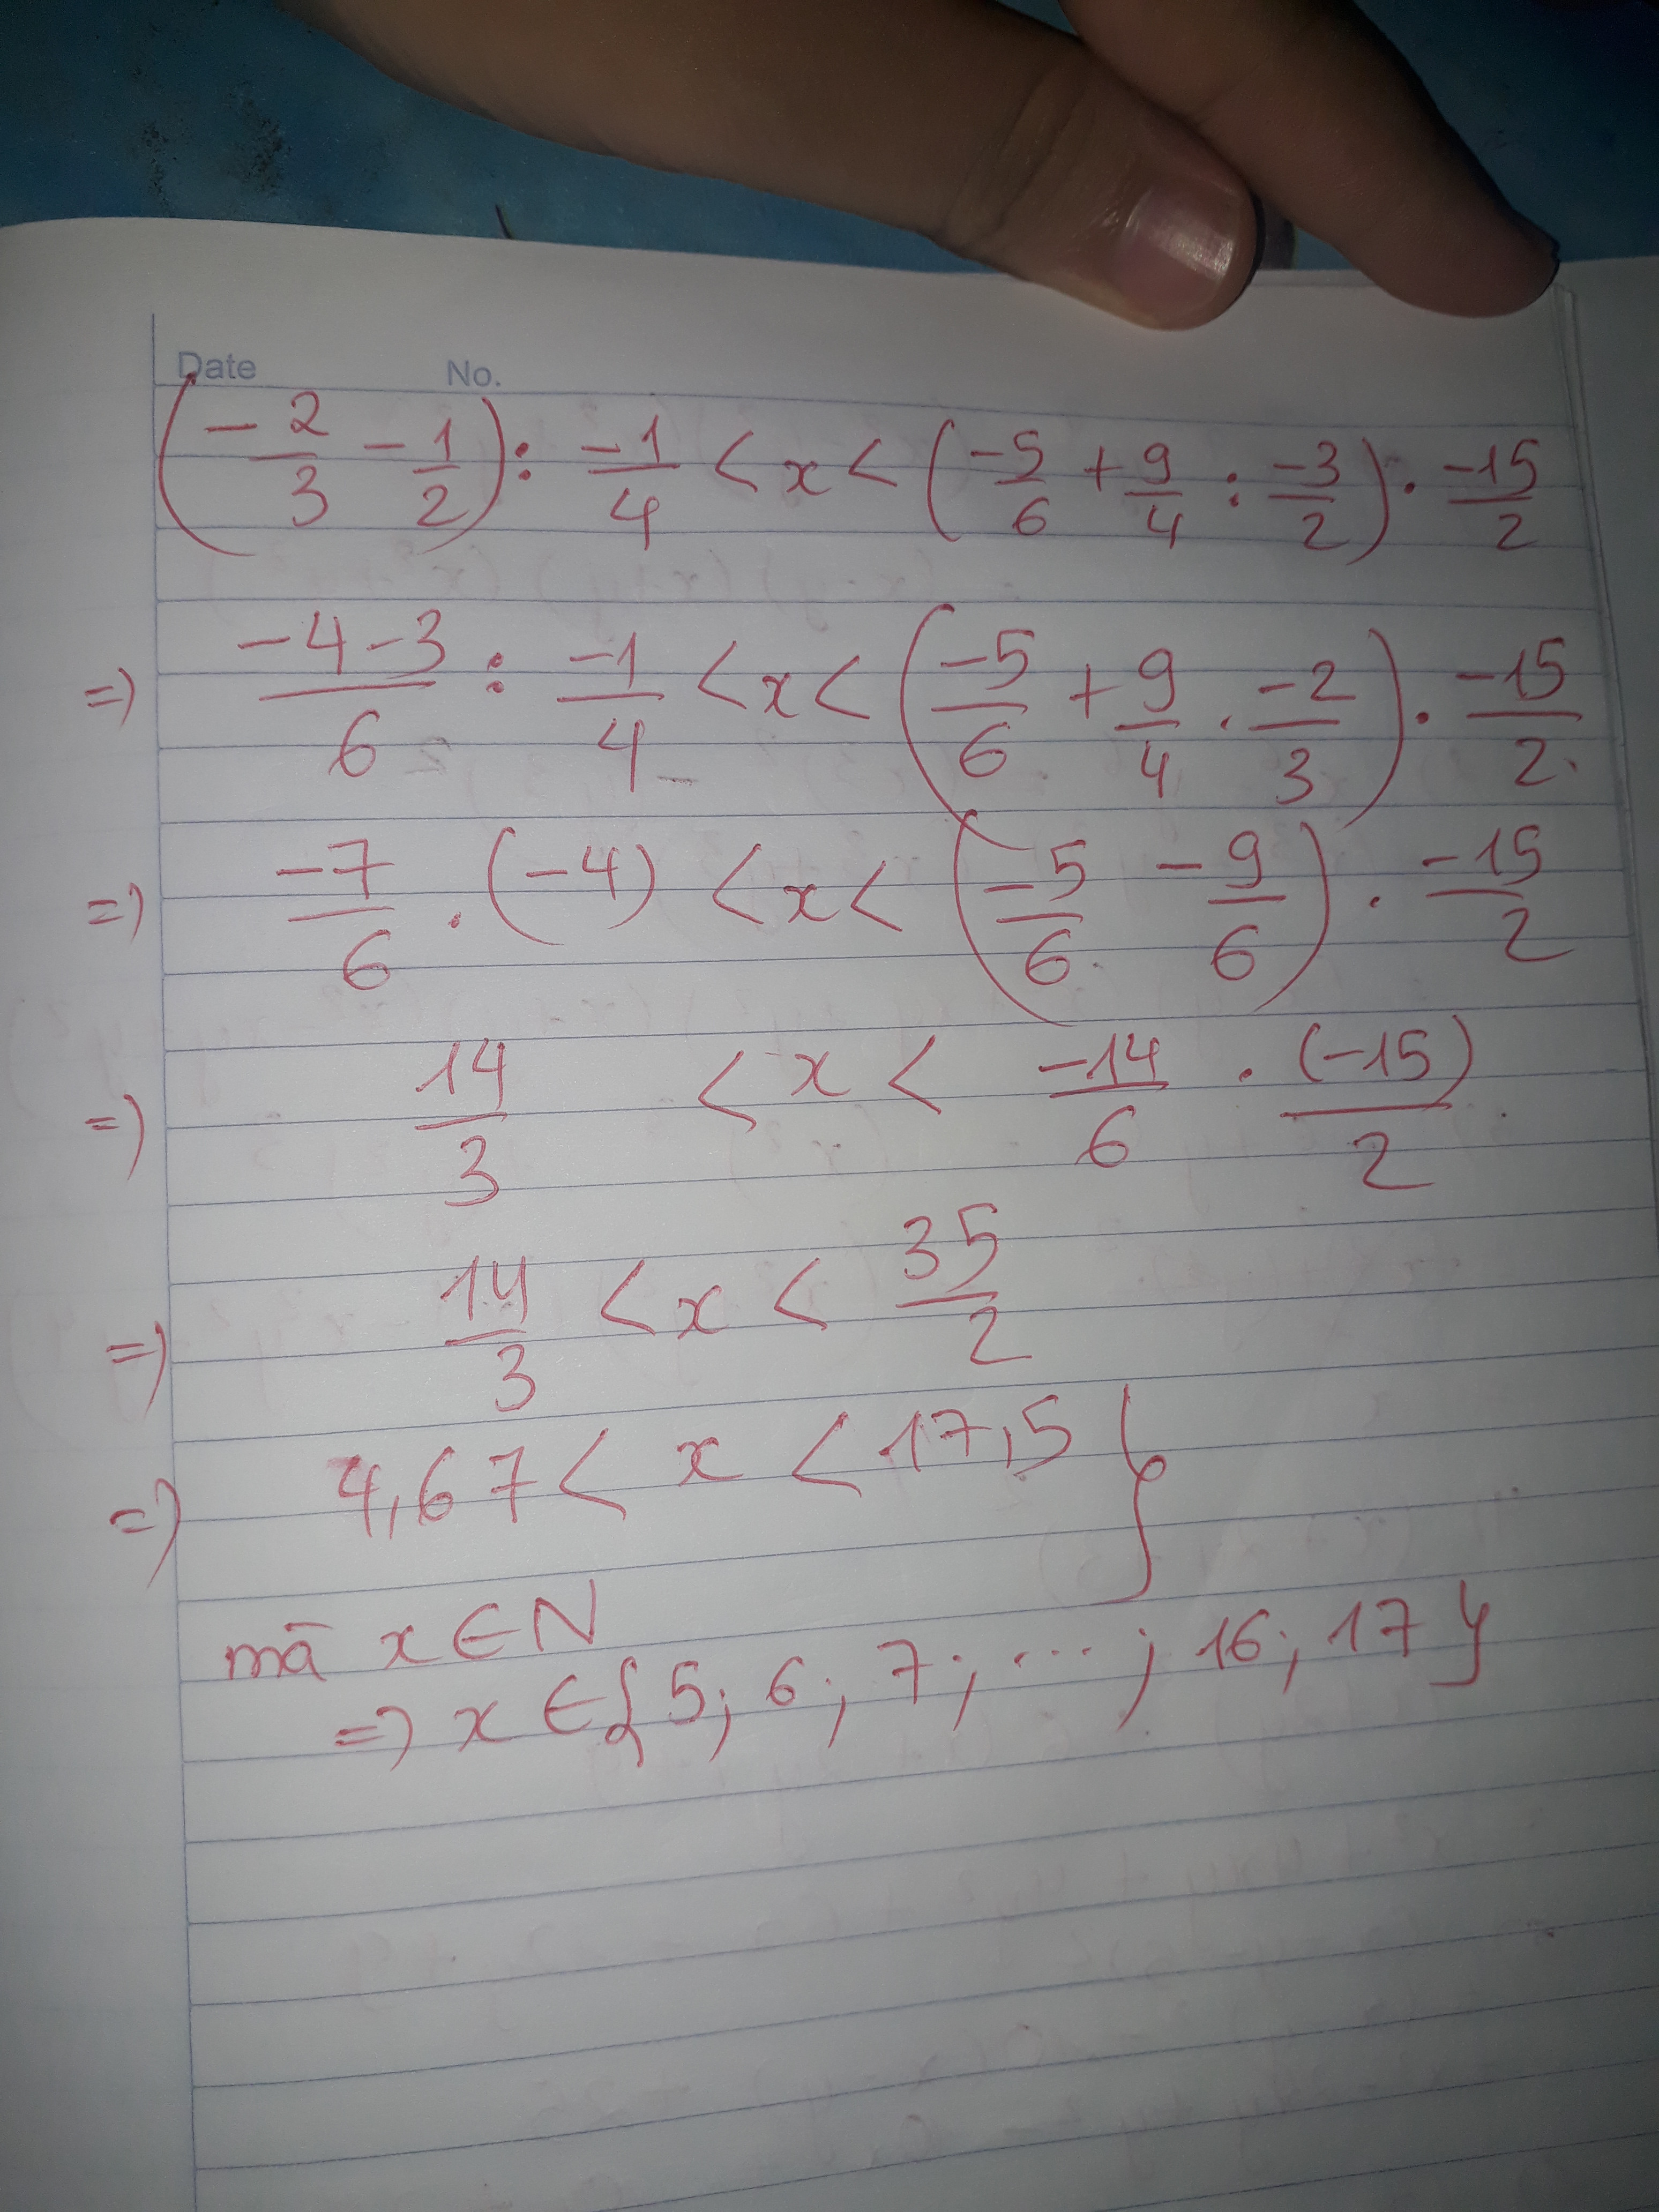 Date No.
(-2/3 - 1/2) : -1/4 < x < (-5/6 + 9/4 : -3/2) . -15/2
=) -4-3/6 : -1/4 < x < (-5/6 + 9/4 . -2/3) . -15/2
=) -7/6 . (-4) < x < (-5/6 - 9/6) . -15/2
=) 14/3 < x < -14/6 . (-15)/2
=) 14/3 < x < 35/2
=) 4,67 < x < 17,5 }
mā x ∈ N
=) x ∈ { 5; 6; 7; ...; 16; 17 }